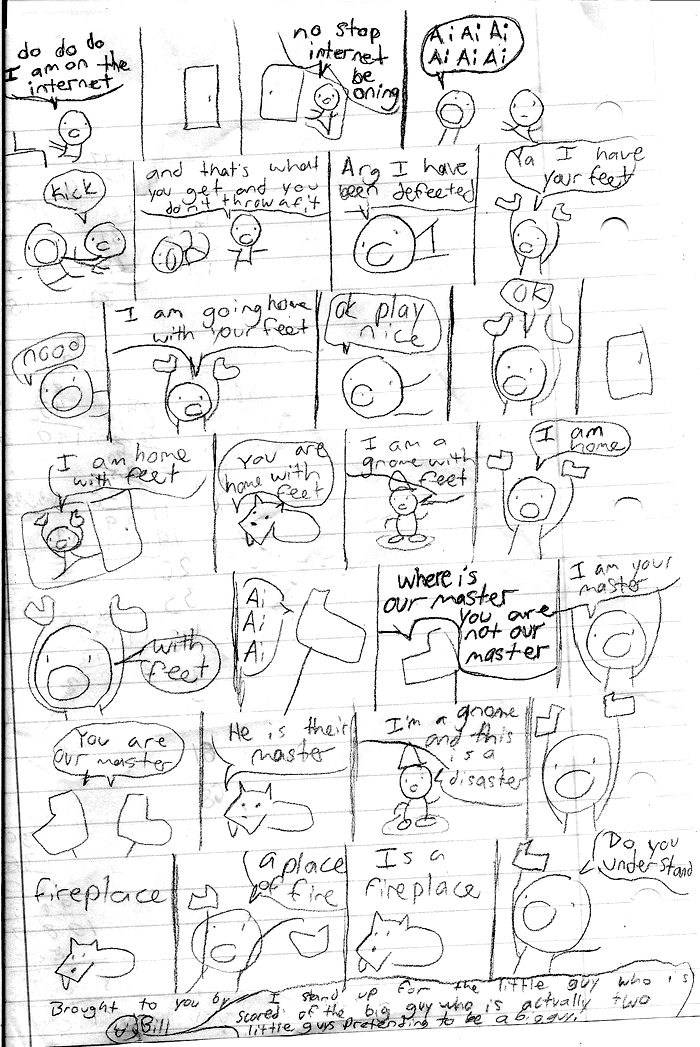 do do do
I am on the
internet
no stop
internet
be
oning
Ai Ai Ai
Ai Ai Ai
kick
and that's what
you get and you
don't throw a fit
Arg I have
been defeeted
Ya I have
your feet
nooo
I am going home
with your feet
ok play
nice
ok
I am home
with feet
You are
home with
feet
I am a
gnome with
feet
I am
home
with
feet
Ai
Ai
Ai
where is
our master
you are
not our
master
I am your
master
You are
our master
He is their
master
I'm a gnome
and this
is a
disaster
fireplace
a place
of fire
Is a
fireplace
Do you
understand
Brought to you by
Bill
I stand up for the little guy who is
scared of the big guy who is actually two
little guys pretending to be a big guy.